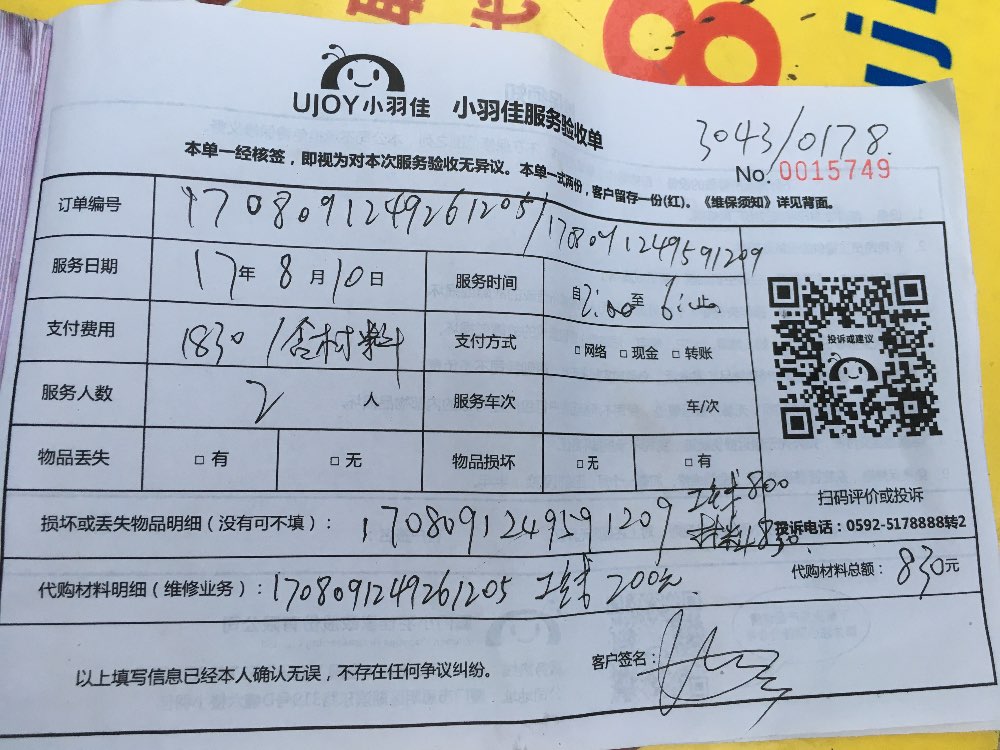 UJOY小羽佳 小羽佳服务验收单
3043/0178.
No. 0015749
本单一经核签，即视为对本次服务验收无异议。本单一式两份，客户留存一份(红)。《维保须知》详见背面。
订单编号 1708091249261205/1708091249591209
服务日期 17年8月10日 服务时间 自2:00至6:
支付费用 1830/含材料 支付方式 □网络 □现金 □转账
投诉或建议
服务人数 2人 服务车次 车/次
物品丢失 □有 □无 物品损坏 □无 □有
扫码评价或投诉
投诉电话：0592-5178888转2
损坏或丢失物品明细（没有可不填）：1708091249591209 工钱800
材料830
代购材料明细（维修业务）：1708091249261205 工钱200元 代购材料总额：830元
以上填写信息已经本人确认无误，不存在任何争议纠纷。 客户签名：